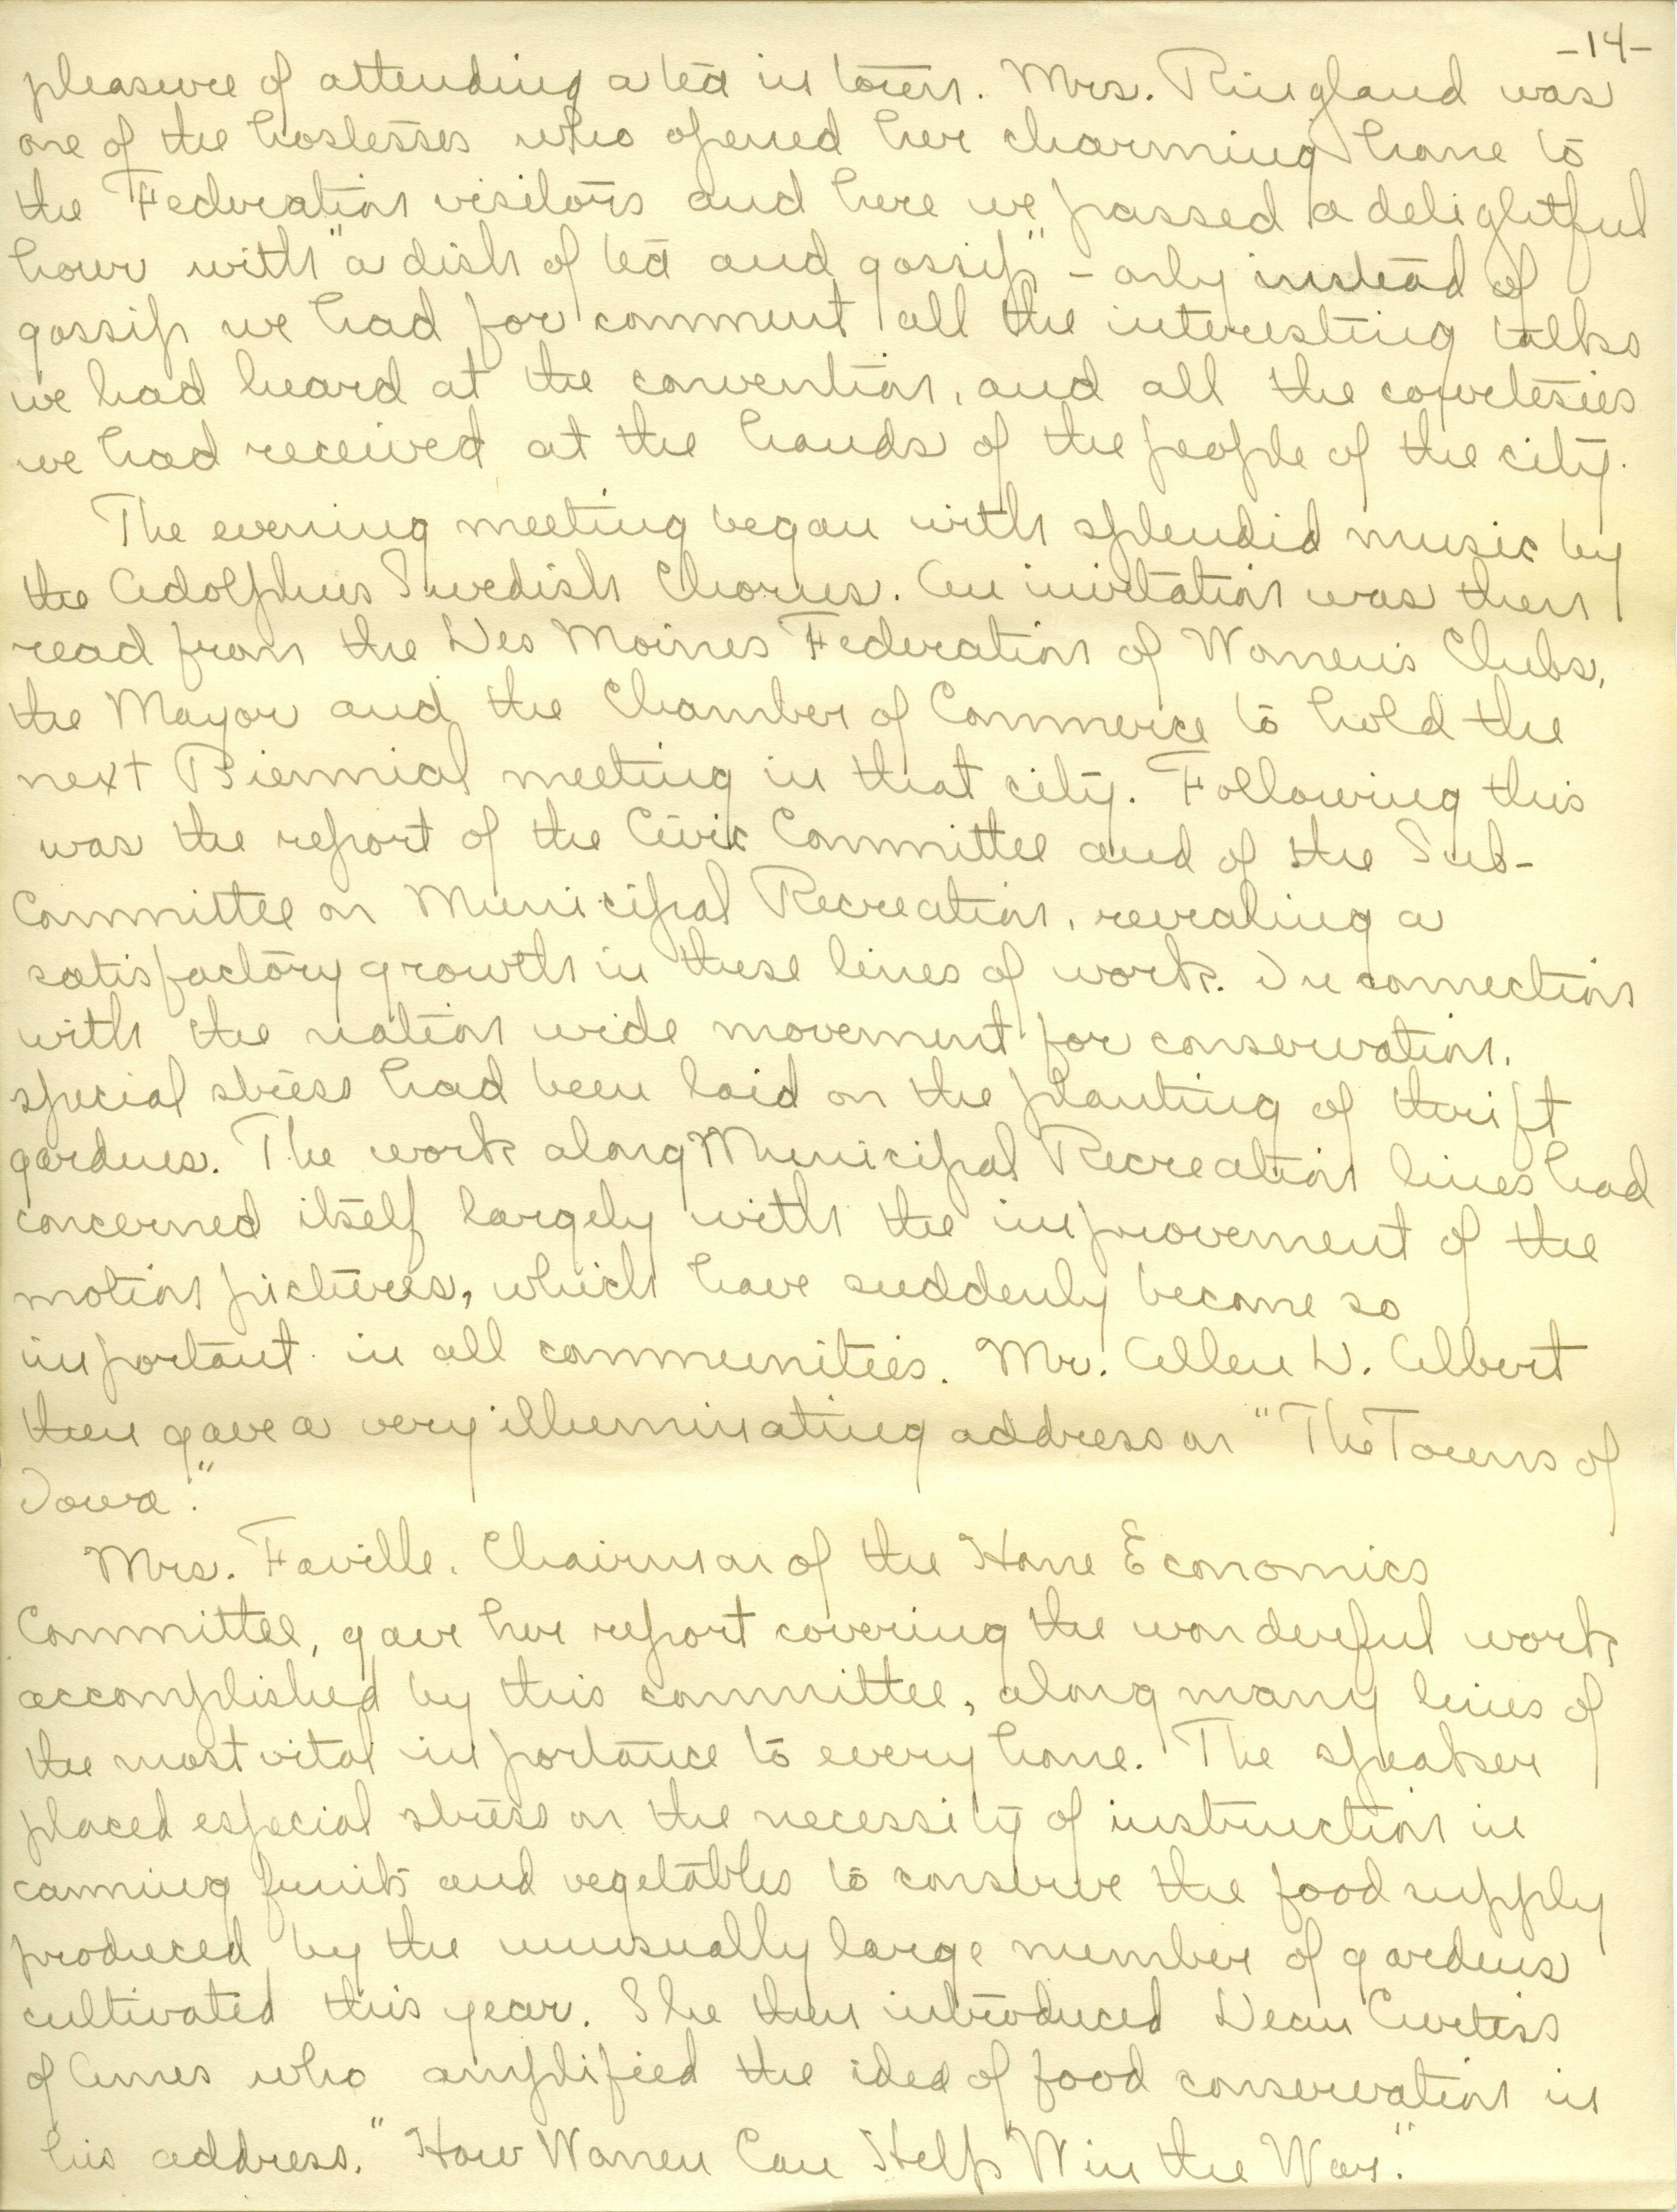 -14-
pleasure of attending a tea in town. Mrs. Ringland was
one of the hostesses who opened her charming home to
the Federation visitors and here we passed a delightful
hour with "a dish of tea and gossip" - only instead of
gossip we had for comment all the interesting talks
we had heard at the convention, and all the courtesies
we had received at the hands of the people of the city.
The evening meeting began with splendid music by
the Adolphus Swedish Chorus. An invitation was then
read from the Des Moines Federation of Women's Clubs,
the Mayor and the Chamber of Commerce to hold the
next Biennial meeting in that city. Following this
was the report of the Civic Committee and of the Sub-
Committee on Municipal Recreation, revealing a
satisfactory growth in these lines of work. In connection
with the nation wide movement for conservation,
special stress had been laid on the planting of thrift
gardens. The work along Municipal Recreation lines had
concerned itself largely with the improvement of the
motion pictures, which have suddenly become so
important in all communities. Mr. Allen D. Albert
then gave a very illuminating address on "The Towns of
Iowa."
Mrs. Faville, Chairman of the Home Economics
Committee, gave her report covering the wonderful work
accomplished by this committee, along many lines of
the most vital importance to every home. The speaker
placed especial stress on the necessity of instruction in
canning fruits and vegetables to conserve the food supply
produced by the unusually large number of gardens
cultivated this year. She then introduced Dean Curtiss
of Ames who amplified the idea of food conservation in
his address, "How Women Can Help Win the War."